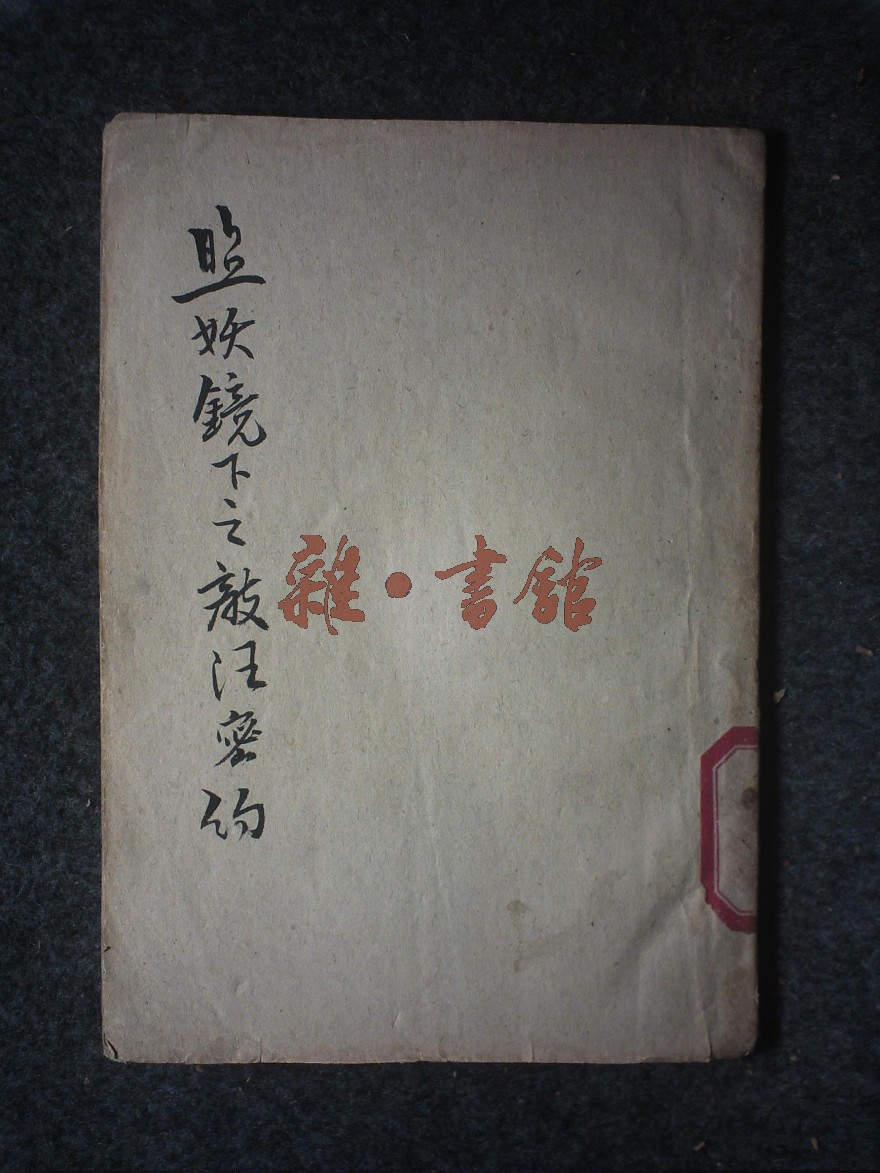 照妖鏡下之敵汪密約
雜·書館